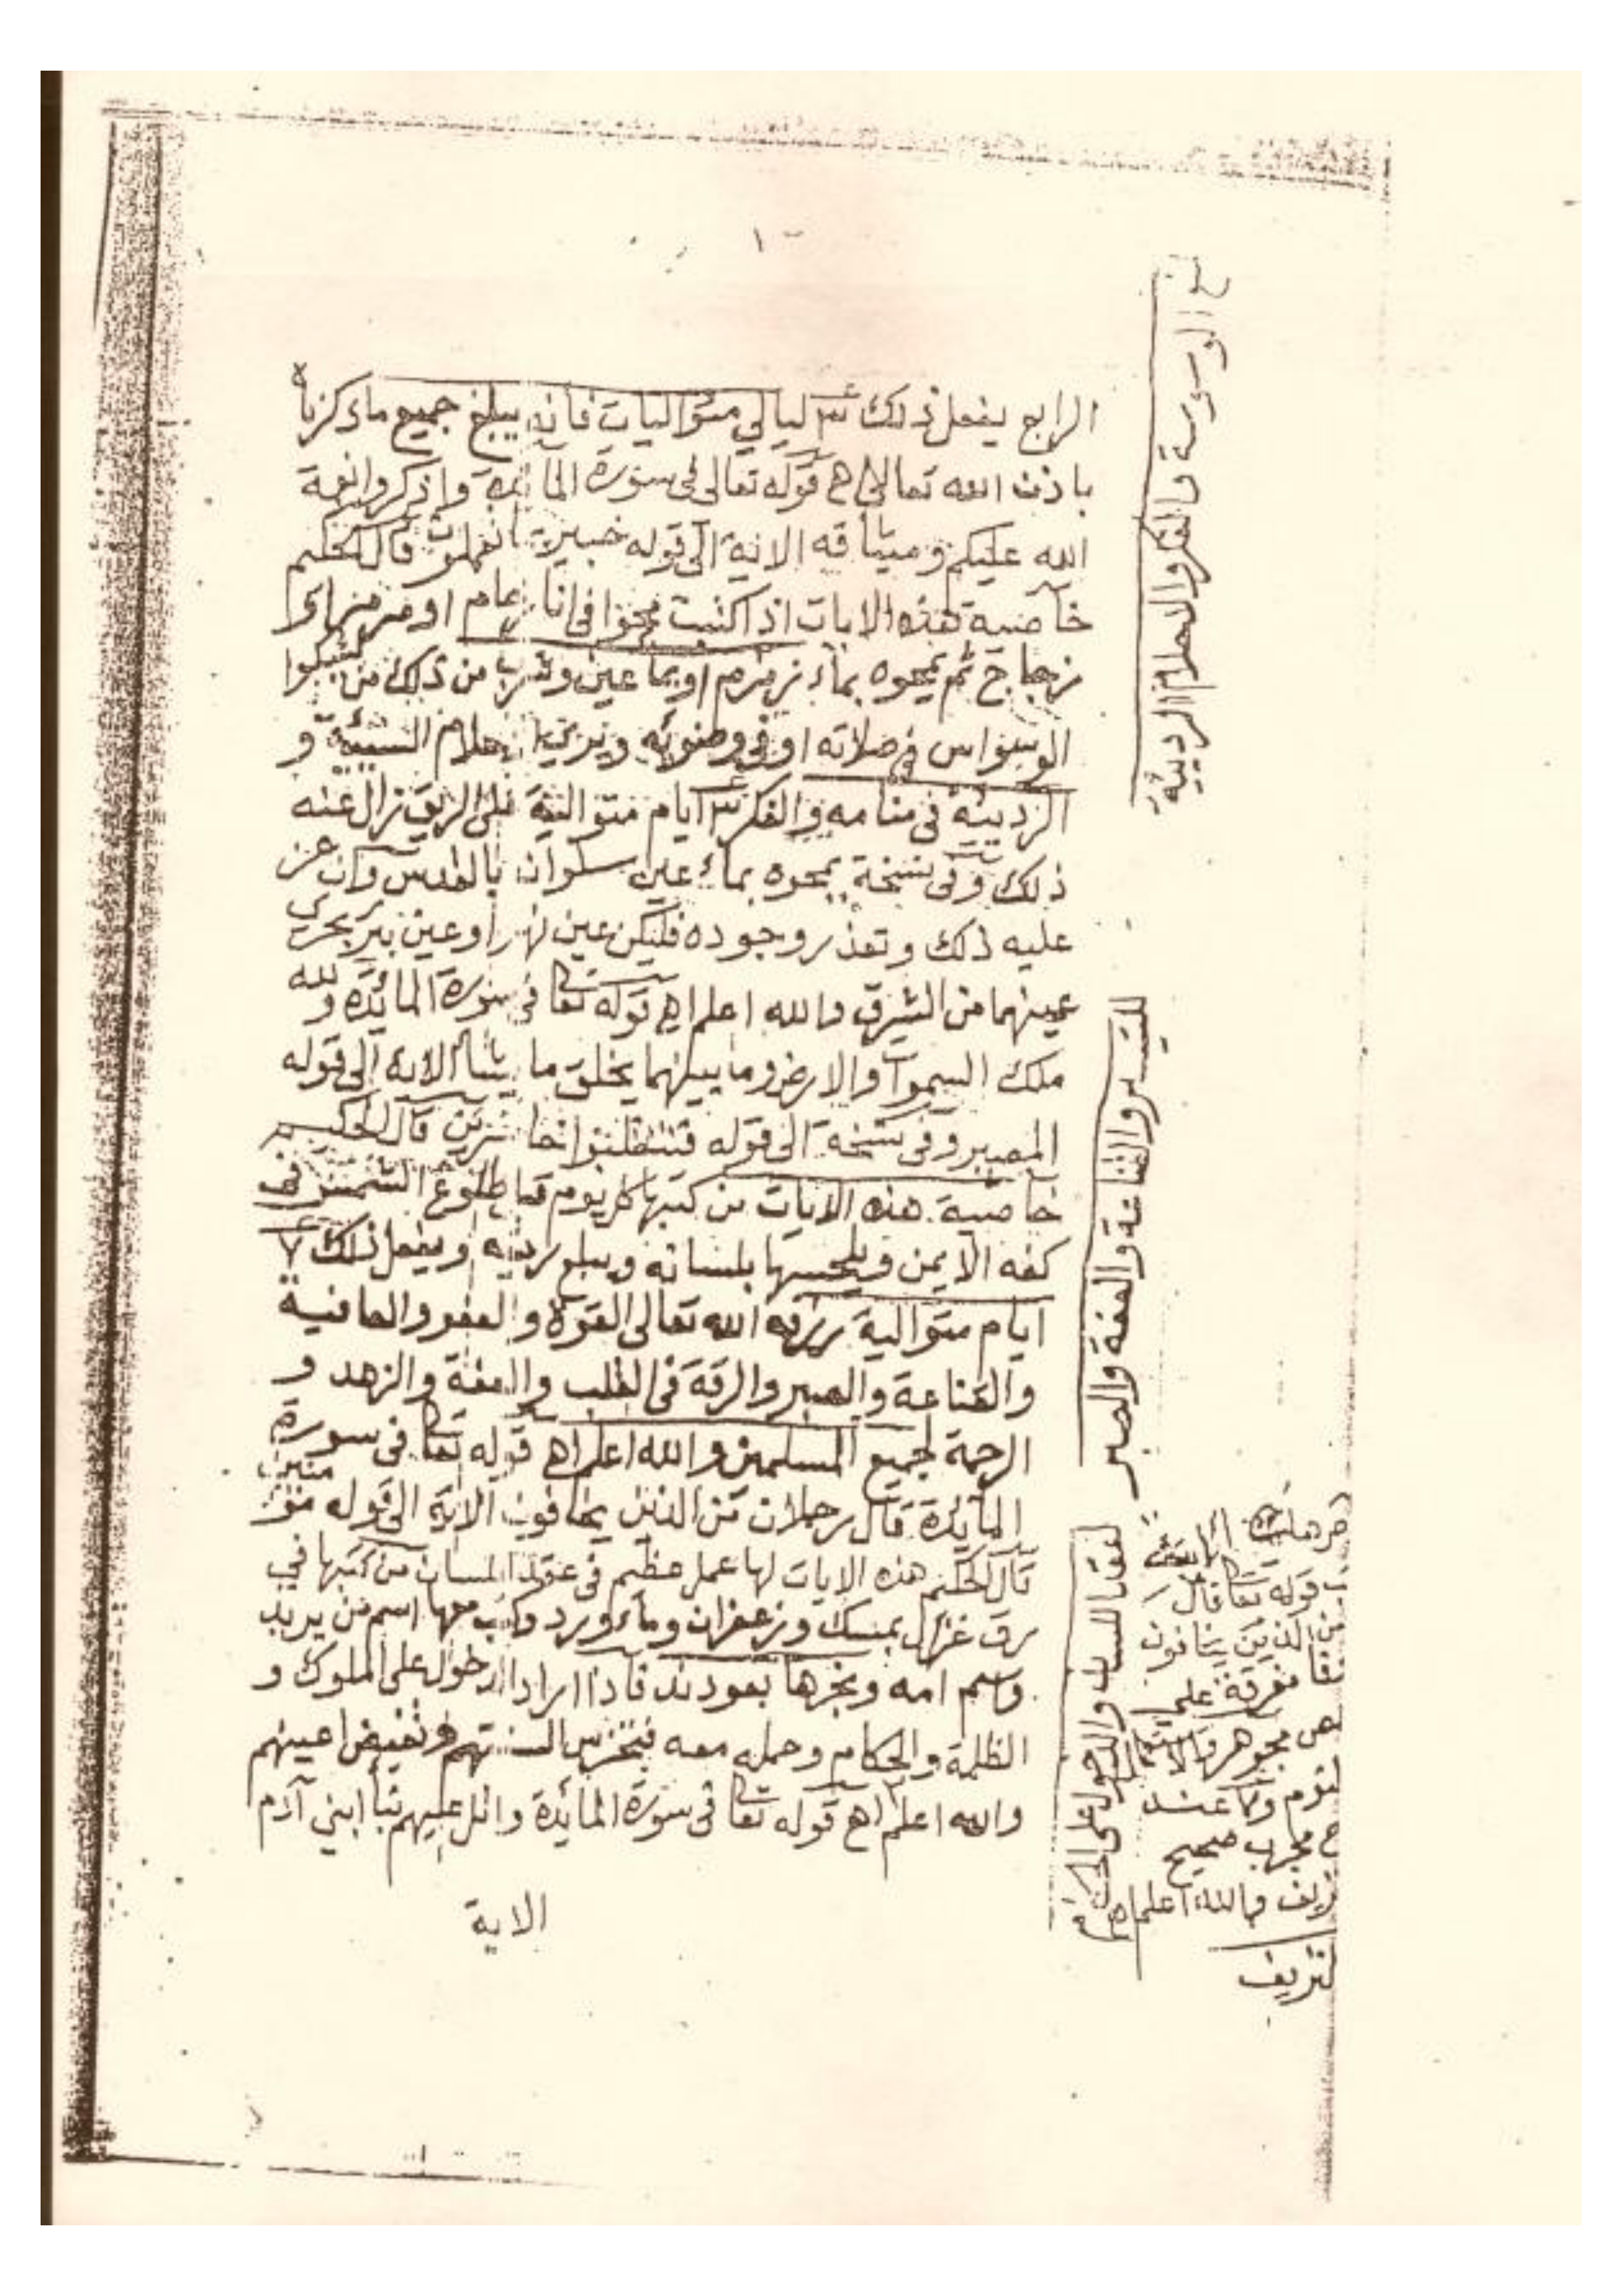 ١٠
الرابع يفعل ذلك ليالي متواليات فانه يبلغ جميع ما ذكرناه
باذن الله تعالى اه قوله تعالى فى سورة المائدة واذكروا نعمة
الله عليكم وميثاقه الاية الى قوله خبير بما تعملون قال الحكيم
خاصية هذه الايات اذا كتبت فى انا او
زجاج ثم يمحوه بماء زمزم او بما عين وشرب من ذلك من يشكوا
الوسواس فى صلاته او فى وضوئه ويرى الاحلام السيئة و
الرديئة فى منامه والفكر ايام متوالية على الريق زال عنه
ذلك وفى نسخة يمحوه بماء عين سلوان بالقدس وان عز
عليه ذلك وتعذر وجوده فليكن عين نهر او عين بير يجرى
عينهما من الشرق والله اعلم اه قوله تعا فى سورة المائدة ولله
ملك السموات والارض وما بينهما يخلق ما يشأ الاية الى قوله
المصير وفى نسخة الى قوله فتنقلبوا خاسرين قال الحكيم
خاصية هذه الايات من كتبها كل يوم قبل طلوع الشمس فى
كفه الايمن ويلحسها بلسانه ويبلع ريقه ويفعل ذلك ٧
ايام متوالية يرزقه الله تعالى القوة والعفو والعافية
والقناعة والصبر والرقة فى القلب والعفة والزهد و
الرحمة لجميع المسلمين والله اعلم اه قوله تعا فى سورة
المائدة قال رجلان من الذين يخافون الاية الى قوله مؤمنين
قال الحكيم هذه الايات لها عمل عظيم فى عقد اللسان من كتبها في
رق غزال بمسك وزعفران وماء ورد وكتب معها اسم من يريد
واسم امه وبخرها بعود ند فاذا اراد الدخول على الملوك و
الظلمة والحكام وحمله معه فيخرس السنتهم وتغيض اعينهم
والله اعلم اه قوله تعا فى سورة المائدة واتل عليهم نبأ ابني آدم
الاية
الوسوسة والفكر والاحلام الردية
والقناعة والعفة والصبر
لعقد اللسان والدخول على الحكام
قوله تعا قال
من الذين يخافون
مجرب صحيح
والله اعلم اه